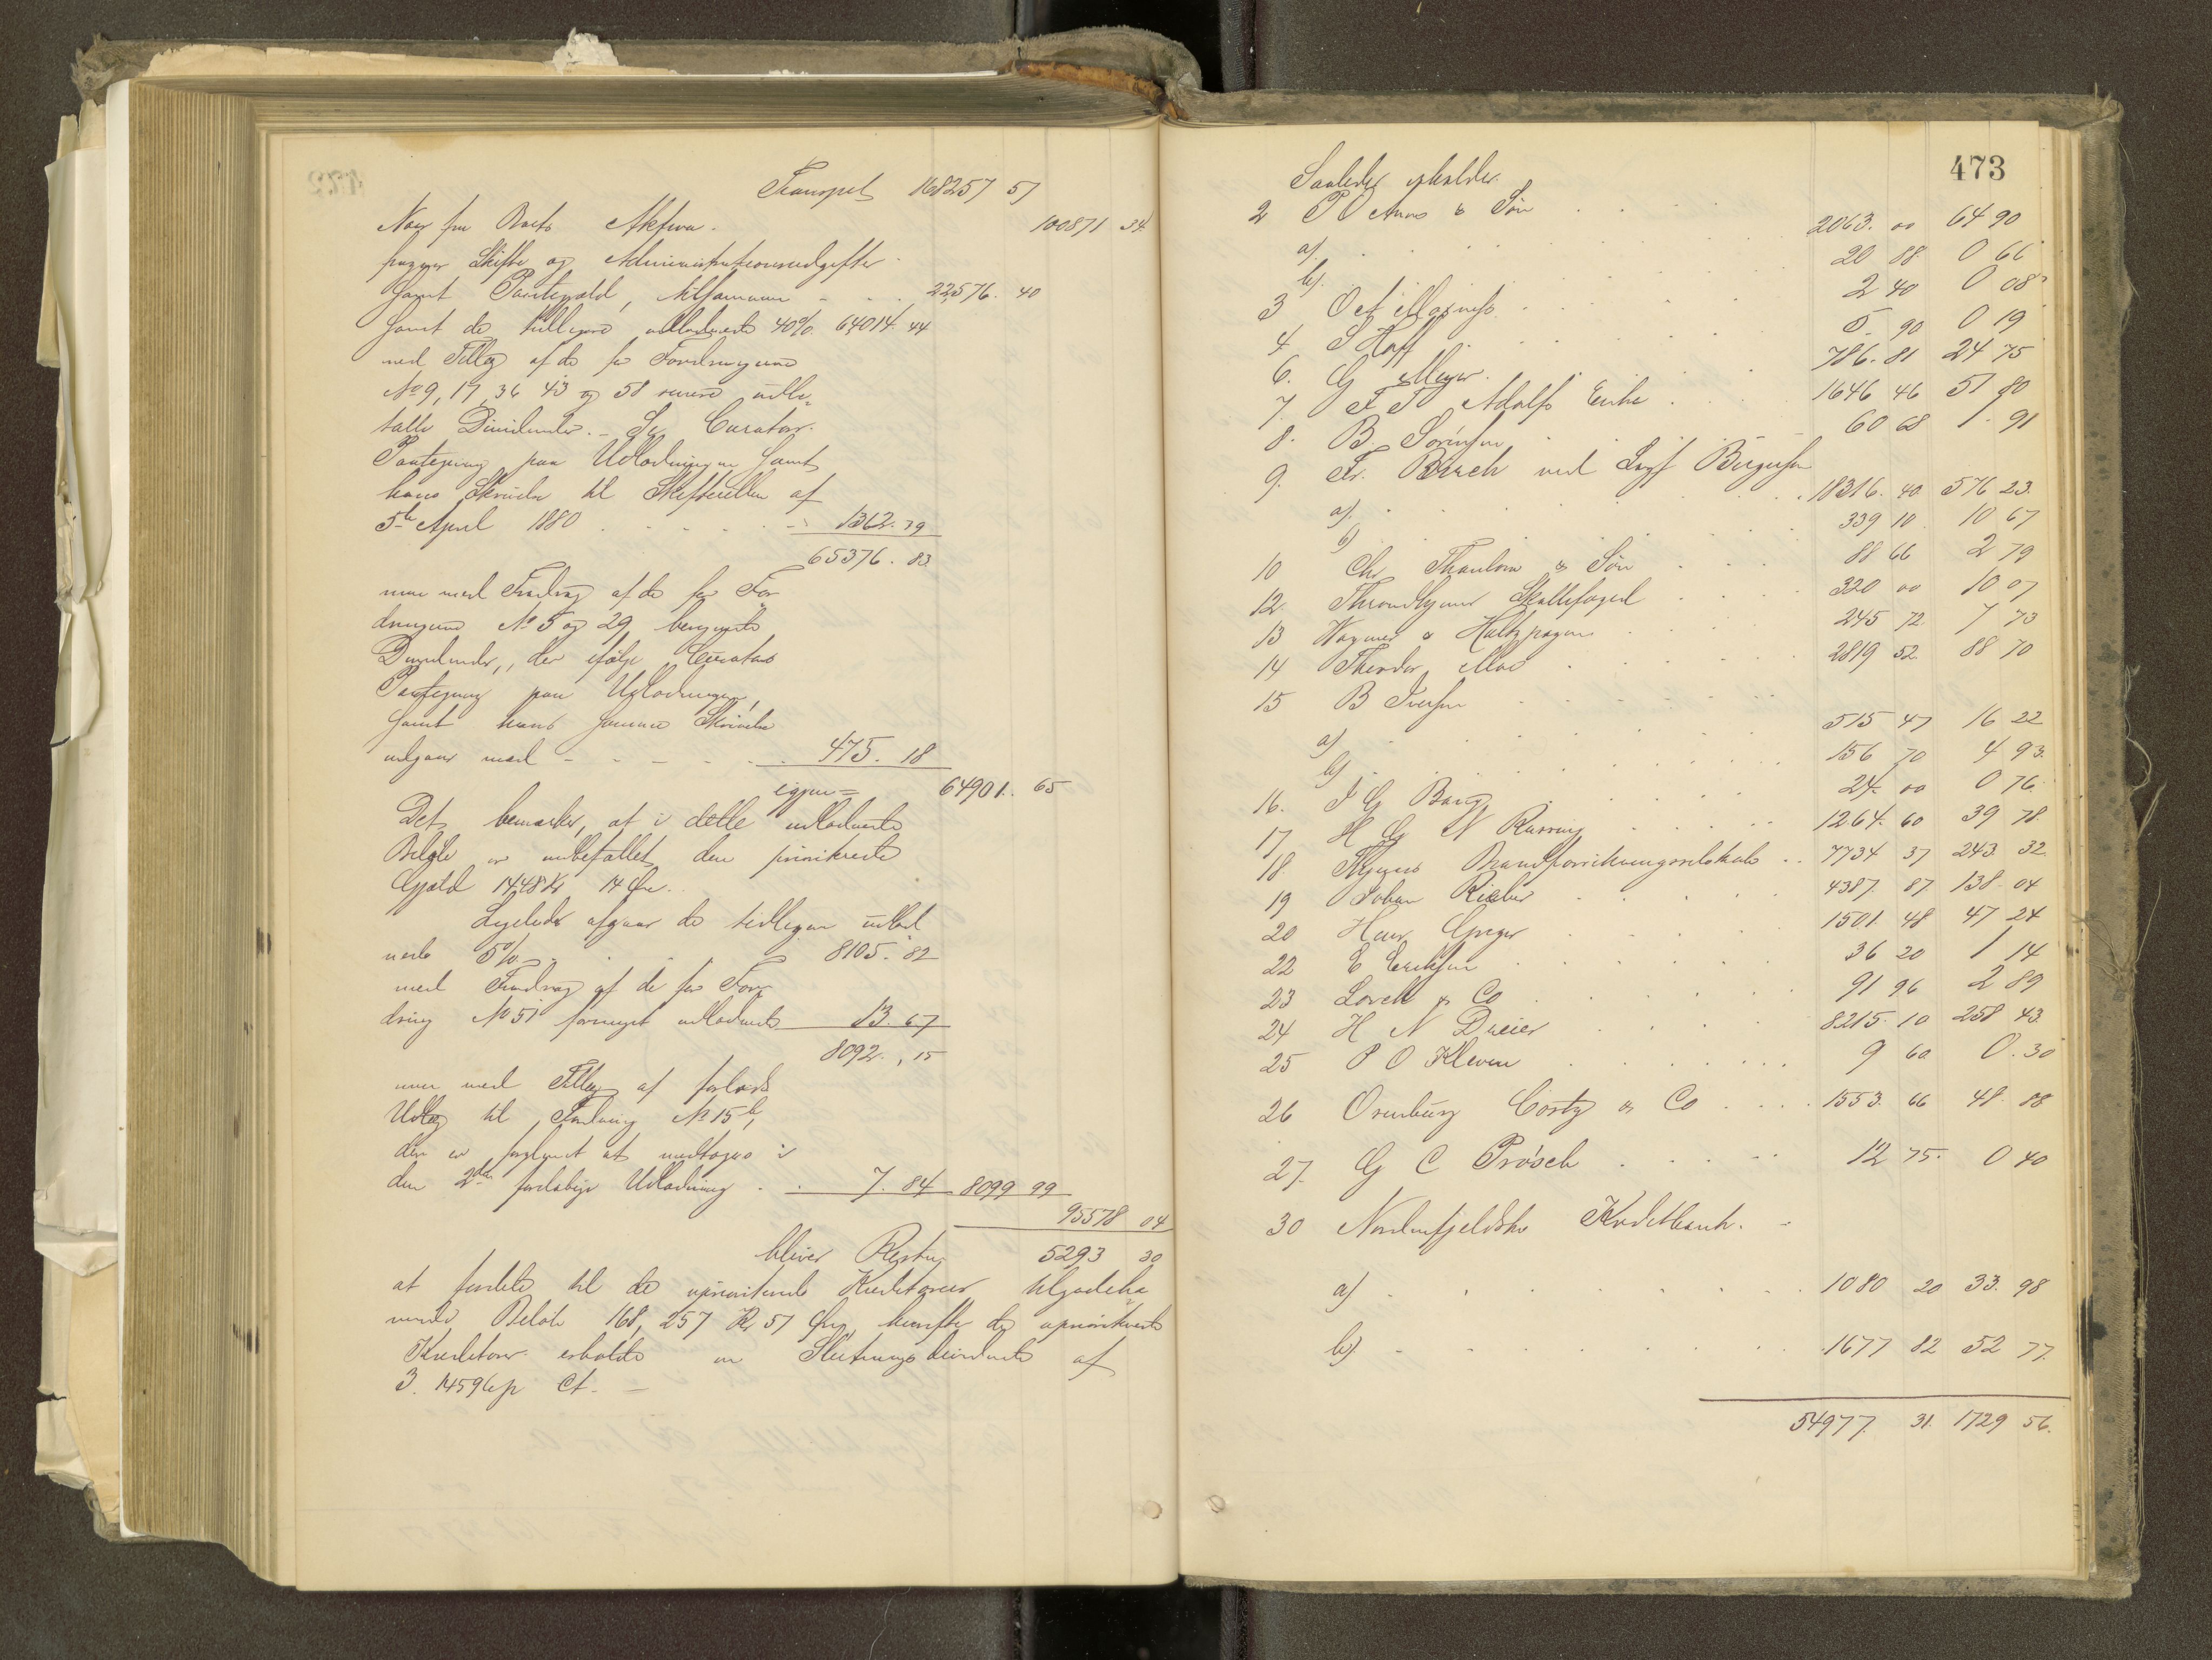 Transport 168257 51
Naar fra Boets Aktiva 100871 34
fragaar Skifte og Administrationsudgifter
samt Pantegjæld, tilsammen - - . 22,576. 40
samt de tidligere udloddede 40% 64014. 44
med Tillæg af de for Fordringerne
No 9, 17, 36 43 og 58 senere udbe-
talte Dividender. - Se Curators
Paategning paa Udlodningen samt
hans Skrivelse til Skifteretten af
5te April 1880 - - - - 1362. 39
65376. 83
men med Fradrag af de for For-
dringerne No 5 og 29 beregnede
Dividender, der ifølge Curators
Paategning paa Udlodningen,
samt hans samme Skrivelse
udgaar med - - - - - 475. 18
igjen = 64901. 65
Det bemærkes, at i dette udloddede
Beløb er indbefattet den prioriterede
Gjæld 1448 Kr 14 Øre.
Ligeledes afgaar de tidligere udlod-
dede 5% - - - 8105. 82
med Fradrag af de for For-
dring No 51 formeget udloddede 13. 67
8092. 15
men med Tillæg af forlods
Udlæg til Fordring No 15 b,
der er forglemt at medtages i
den 2den foreløbige Udlodning - . 7. 84 8099 99
95578 04
bliver Resten 5293 30
at fordele til de uprioriterede Kreditorer tilgodeha-
vende Beløb 168,257 Kr 51 Øre, hvorefter de uprioriterede
Kreditorer erholde en Slutningsdividende af
3. 14596 pr Ct. -
473
Saaledes erholder
2 P O & Søn . . . .
a) . . . . 2063. 00 64 90
b) . . . . 20 88 0 66
3 O A . . . . 2 40 0 08
4 I Hoff . . . . 5. 90 0 19
6. G Meyer . . . . 786. 81 24 75
7. F F Adolfs Enke . . . 1646 46 51 80
8. B. Sørensen . . . . 60 68 1. 91
9. Fr. Birch ved Sagf Birgersen
a) . . . . 18316. 40 576 23.
b) . . . . 339 10 10 67
10 Chr Thaulow & Søn . . . 88 66 2 79
12. Throndhjems Skattefoged . . . 320 00 10 07
13 Wagner & . . . 245 72 7 73
14 Theodor Moe . . . 2819 52 88 70
15 B Iversen . . . .
a) . . . . 515 47 16 22
b) . . . . 156 70 4 93.
16. I G Bang . . . . 24. 00 0 76.
17 H G N . . . . 1264. 60 39 78.
18. Brandforsikringsselskab . . 7734 37 243. 32
19 Johan Rieber . . . 4387. 87 138. 04
20 Hans Gregor . . . 1501. 48 47 24
22 E Eriksen . . . . 36 20 1 14
23 Lorck & Co . . . . 91 96 2 89
24 H N Dreier . . . 8215. 10 258 43.
25 P O Kleven . . . . 9 60 0. 30
26 Orenburg Cortz & Co . . . 1553. 66 48. 88
27. G C Prösch . . . . 12 75. 0 40
30 Nordenfjeldske Kreditbank. -
a) . . . . 1080 20 33. 98
b) - . . . . 1677 82 52 77.
54977. 31. 1729 56.